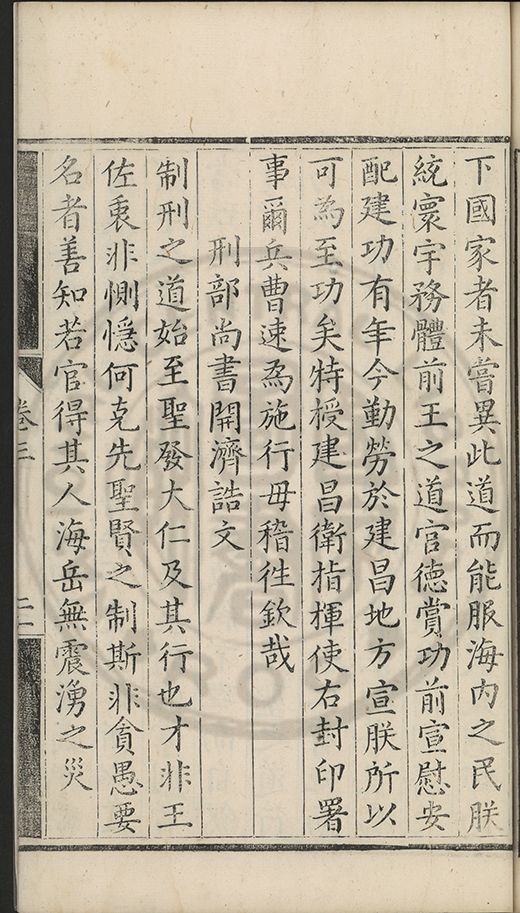 下國家者未嘗異此道而能服海內之民朕
統寰宇務體前王之道官德賞功前宣慰安
配建功有年今勤勞於建昌地方宣朕所以
可為至功矣特授建昌衛指揮使右封印署
事爾兵曹速為施行毋稽徃欽哉
刑部尚書開濟誥文
制刑之道始至聖發大仁及其行也才非王
佐衷非惻憶何克先聖賢之制斯非貪愚要
名者善知若官得其人海岳無震湧之災
卷三